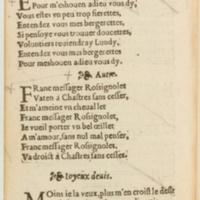 Pour m'eshouen adieu vous dy,
Vous estes vn peu trop fierettes,
Entendez vous mes bergerettes
Si pensoye vous trouuer doucettes,
Volontiers reuiendray Lundy,
Entendez vous mes bergerettes
Pour meshouen adieu vous dy.
Autre.
FRanc messager Rossignolet
Vaten à Chastres sans cesser,
Et m'ameine vn cheuallet
Franc messager Rossignolet,
Ie vueil porter vn bel œillet
A m'amour, sans nul mal penser,
Franc messager Rossignolet,
Va droict à Chastres sans cesser.
Ioyeux deuis.
MOins ie la veux, plus m'en croist le desir